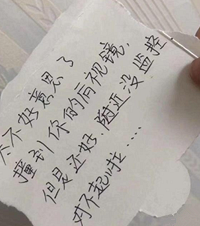 太不好意思了
撞到你的后视镜,
但是还好,附近没监控
对不起啦....